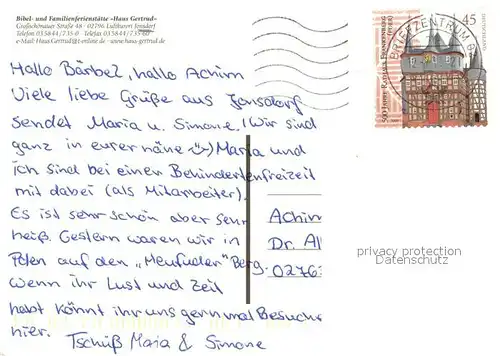 Bibel- und Familienferienstätte »Haus Gertrud«
Großschönauer Straße 48 · 02796 Luftkurort Jonsdorf
Telefon 035844/735-0 Telefax 035844/735-60
e-Mail: Haus.Gertrud@t-online.de · www.haus-gertrud.de
Hallo Bärbel, hallo Achim
Viele liebe Grüße aus Jonsdorf
sendet Maria u. Simone! (Wir sind
ganz in eurer näne ;-) Maria und
ich sind bei einer Behindertenfreizeit
mit dabei (als Mitarbeiter).
Es ist sehr schön aber sehr
heiß. Gestern waren wir in
Polen auf den „Heufuder" Berg.
Wenn ihr Lust und Zeit
habt könnt ihr uns gern mal Besuchen
hier. Tschüß Maria & Simone
Achim
Dr. Al
0276
500 Jahre Rathaus Frankenberg (Eder)
45
DEUTSCHLAND
BRIEFZENTRUM
privacy protection
Datenschutz